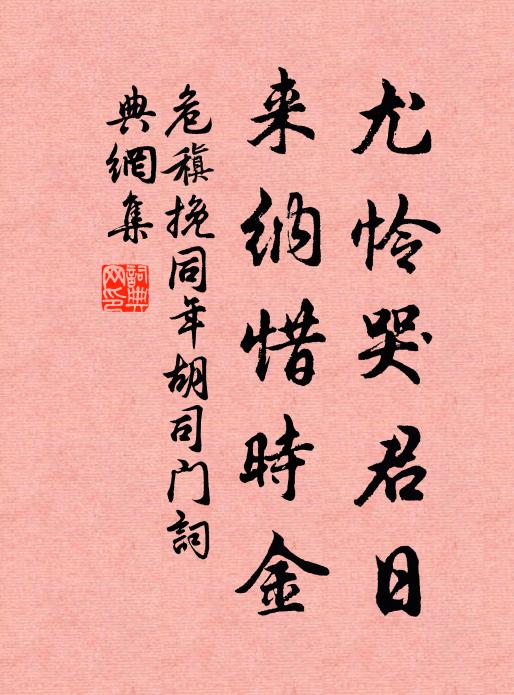 尤怜哭君日
来纳惜時金
危稹挽同年胡司门詞
典網集
詞典网印